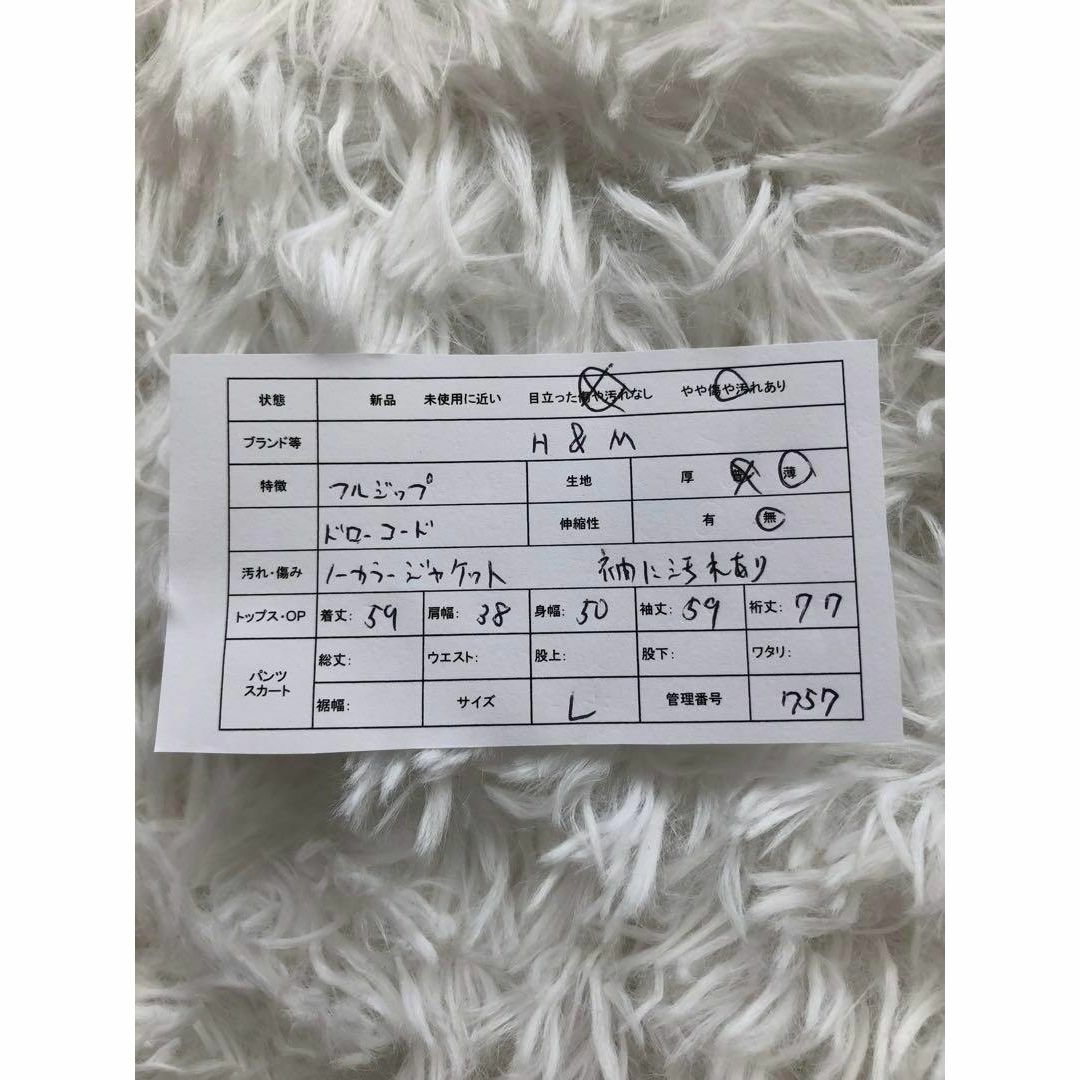 状態 新品 未使用に近い 目立った傷や汚れなし やや傷や汚れあり
ブランド等 H & M
特徴 フルジップ 生地 厚 薄
ドローコード 伸縮性 有 無
汚れ・傷み ノーカラージャケット 袖に汚れあり
トップス・OP 着丈: 59 肩幅: 38 身幅: 50 袖丈: 59 裄丈: 77
パンツ スカート 総丈: ウエスト: 股上: 股下: ワタリ:
裾幅: サイズ L 管理番号 757